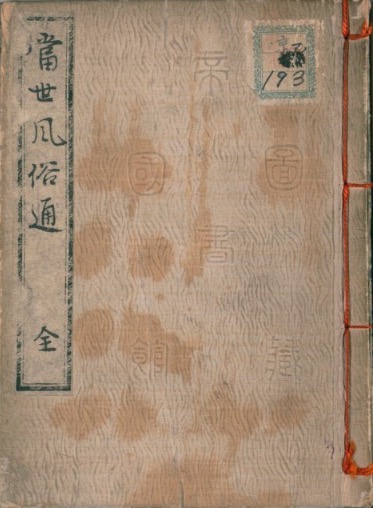 當世風俗通 全
193
帝國圖書館藏